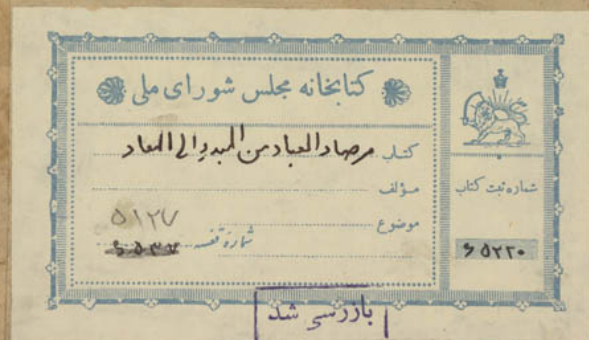 کتابخانه مجلس شورای ملی
کتاب مرصاد العباد من المبدء الی المعاد
مؤلف
موضوع
شماره قفسه
۵۱۲۷
شماره ثبت کتاب
۶۵۲۲۰
بازرسی شد